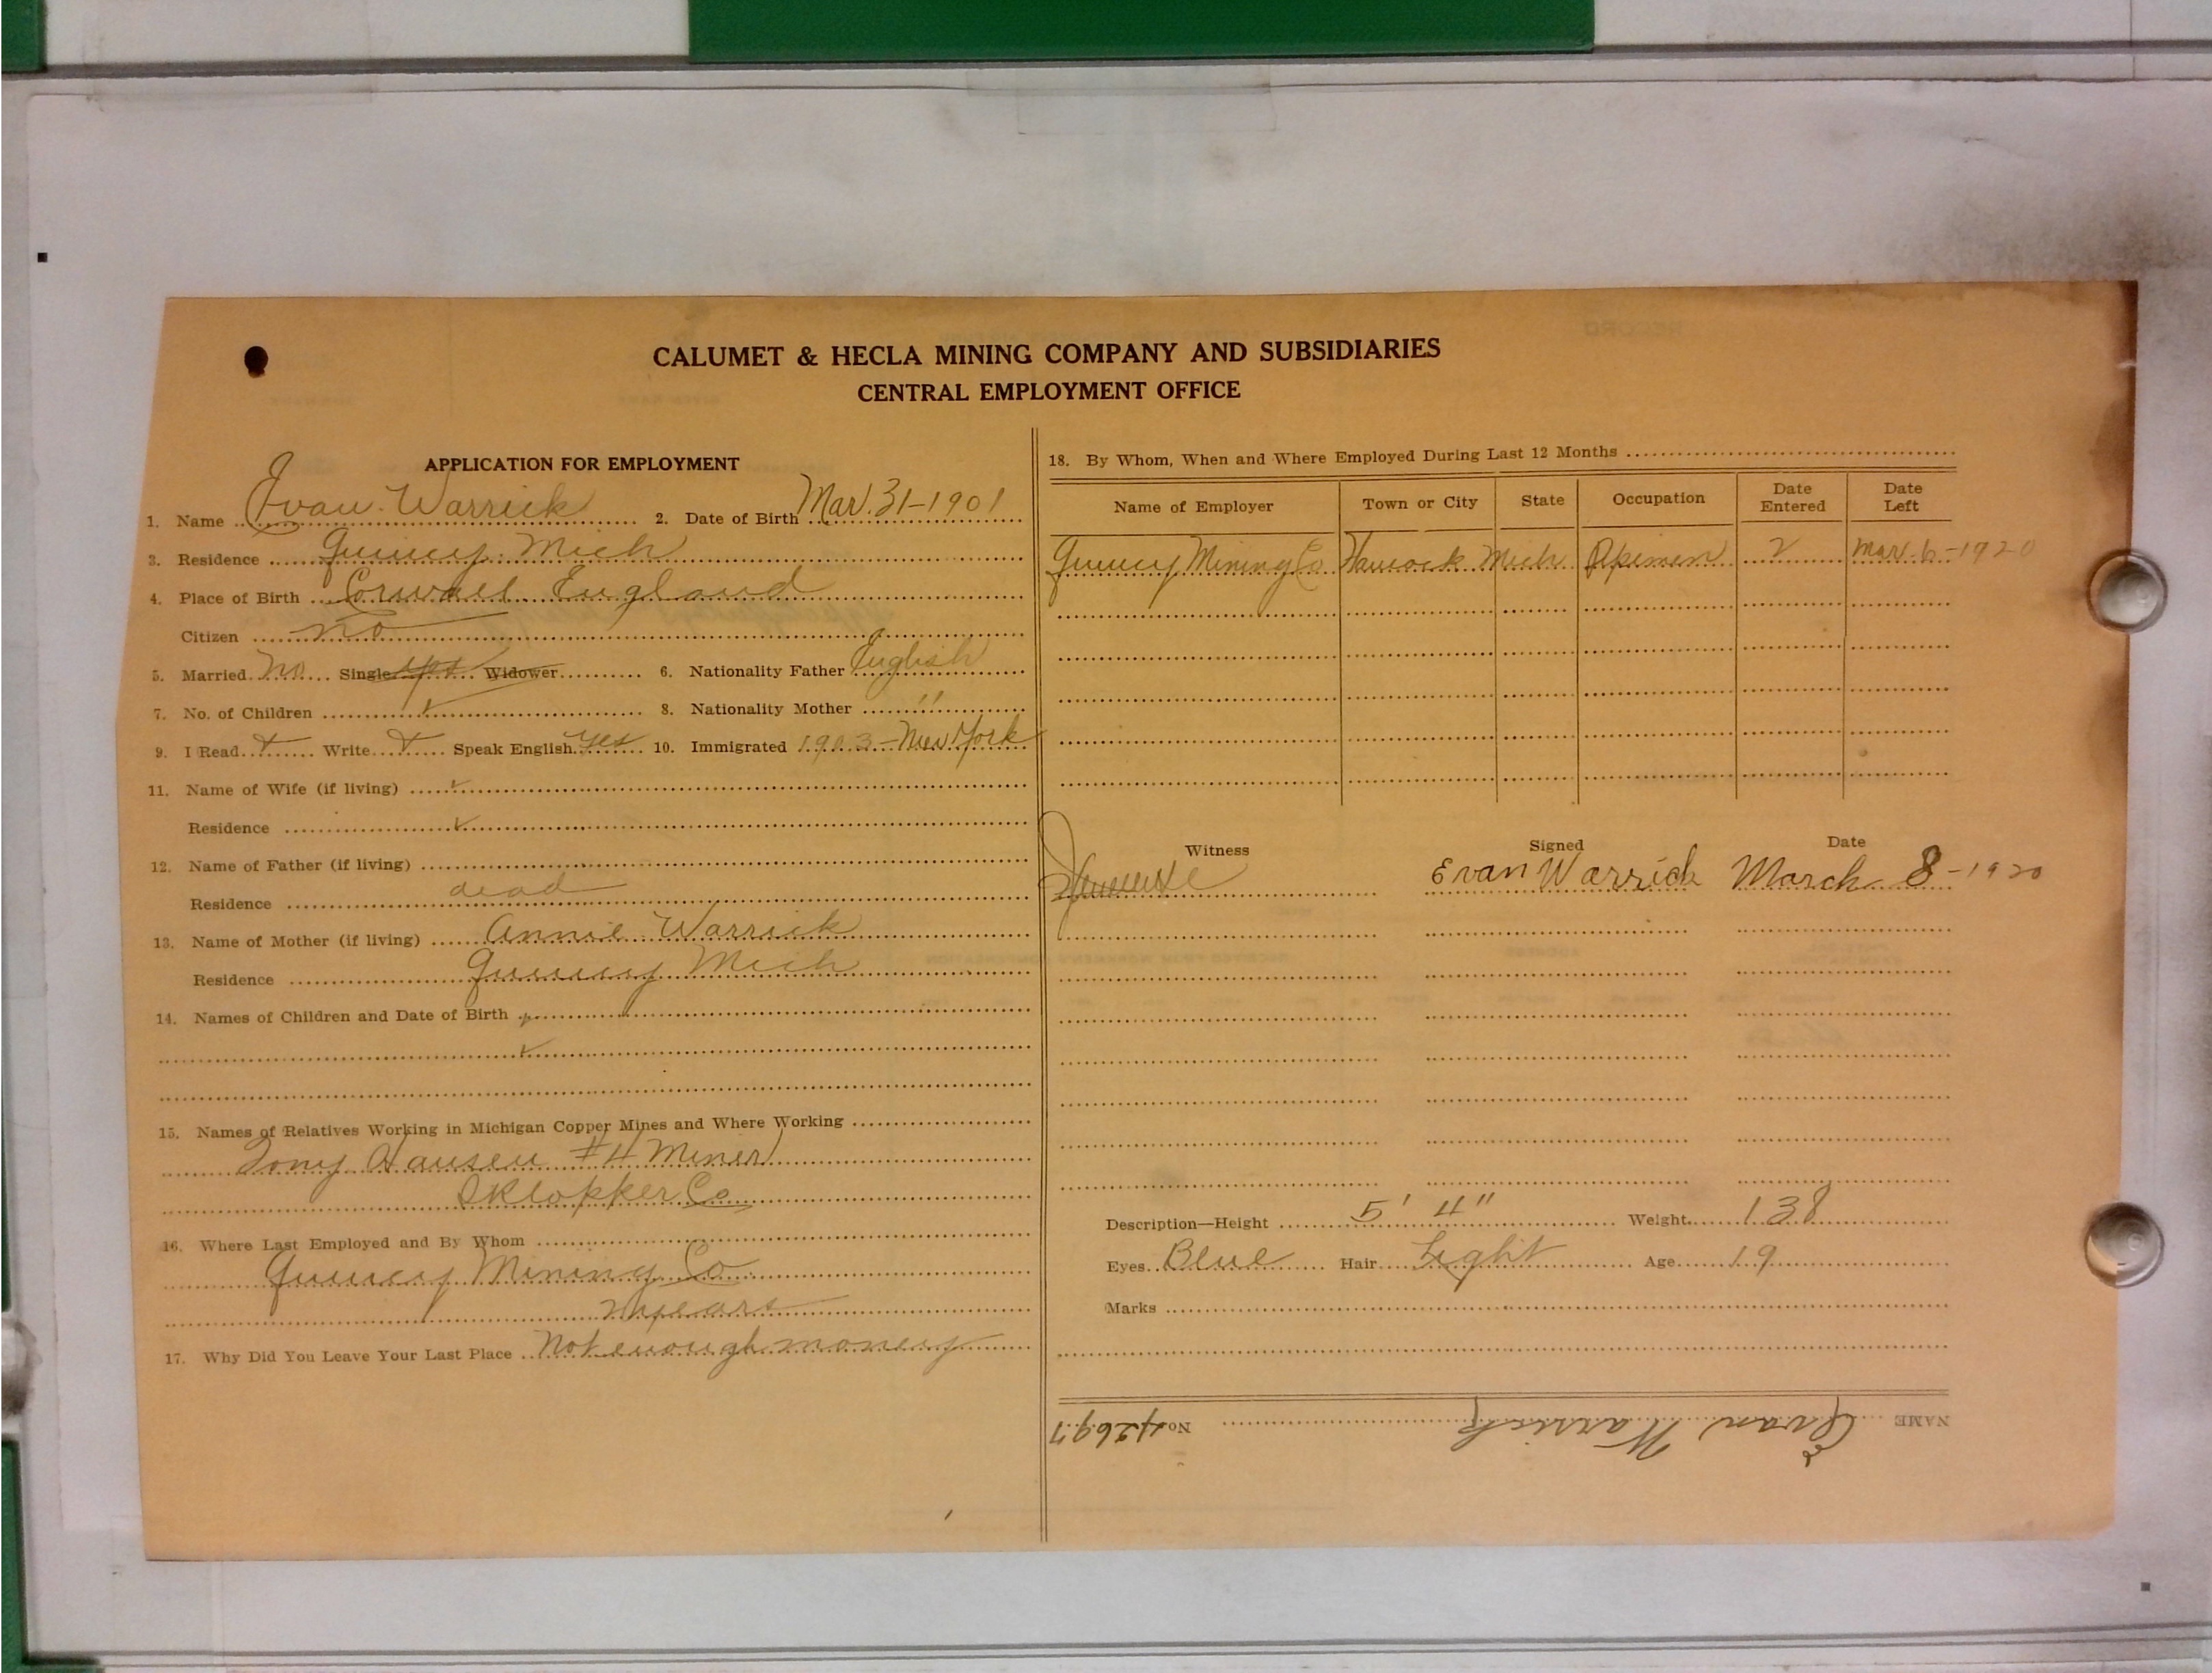 CALUMET & HECLA MINING COMPANY AND SUBSIDIARIES
CENTRAL EMPLOYMENT OFFICE
APPLICATION FOR EMPLOYMENT
1. Name Evan Warrick 2. Date of Birth Mar. 31-1901
3. Residence Quincy Mich
4. Place of Birth Cornwall England
Citizen no
5. Married no Single yes Widower 6. Nationality Father English
7. No. of Children ✓ 8. Nationality Mother "
9. I Read + Write + Speak English yes 10. Immigrated 1903-New York
11. Name of Wife (if living) ✓
Residence ✓
12. Name of Father (if living)
Residence dead
13. Name of Mother (if living) Annie Warrick
Residence Quincy Mich
14. Names of Children and Date of Birth ✓
✓
15. Names of Relatives Working in Michigan Copper Mines and Where Working
Tony Hansen #4 Miner
Co
16. Where Last Employed and By Whom
Quincy Mining Co
2 years
17. Why Did You Leave Your Last Place Not enough money
18. By Whom, When and Where Employed During Last 12 Months
Name of Employer Town or City State Occupation Date Entered Date Left
Quincy Mining Co Hancock Mich 2 Mar. 6-1920
Witness Signed Date
Evan Warrick March 8-1920
Description—Height 5' 4" Weight 138
Eyes Blue Hair Light Age 19
Marks
NAME Evan Warrick No. 42697